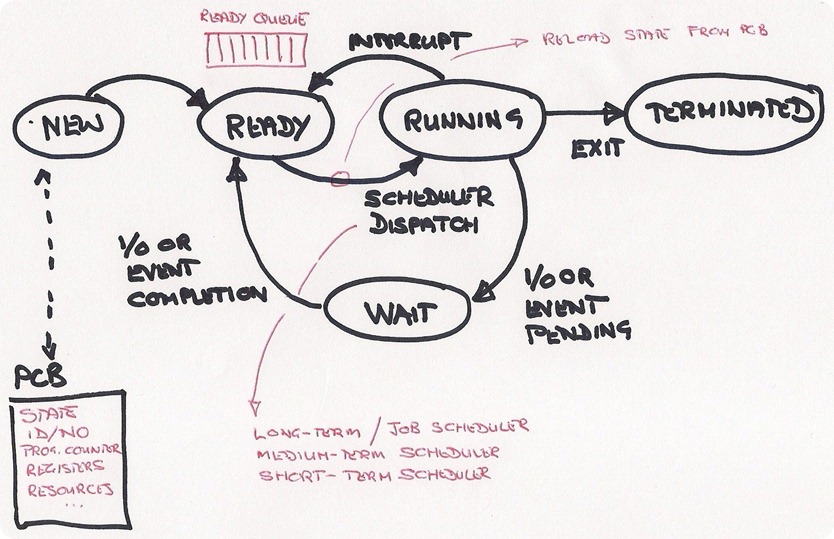 READY QUEUE
INTERRUPT
RELOAD STATE FROM PCB
NEW
READY
RUNNING
TERMINATED
EXIT
SCHEDULER
DISPATCH
I/O OR
EVENT
COMPLETION
WAIT
I/O OR
EVENT
PENDING
PCB
STATE
ID/NO
PROG. COUNTER
REGISTERS
RESOURCES
...
LONG-TERM / JOB SCHEDULER
MEDIUM-TERM SCHEDULER
SHORT-TERM SCHEDULER